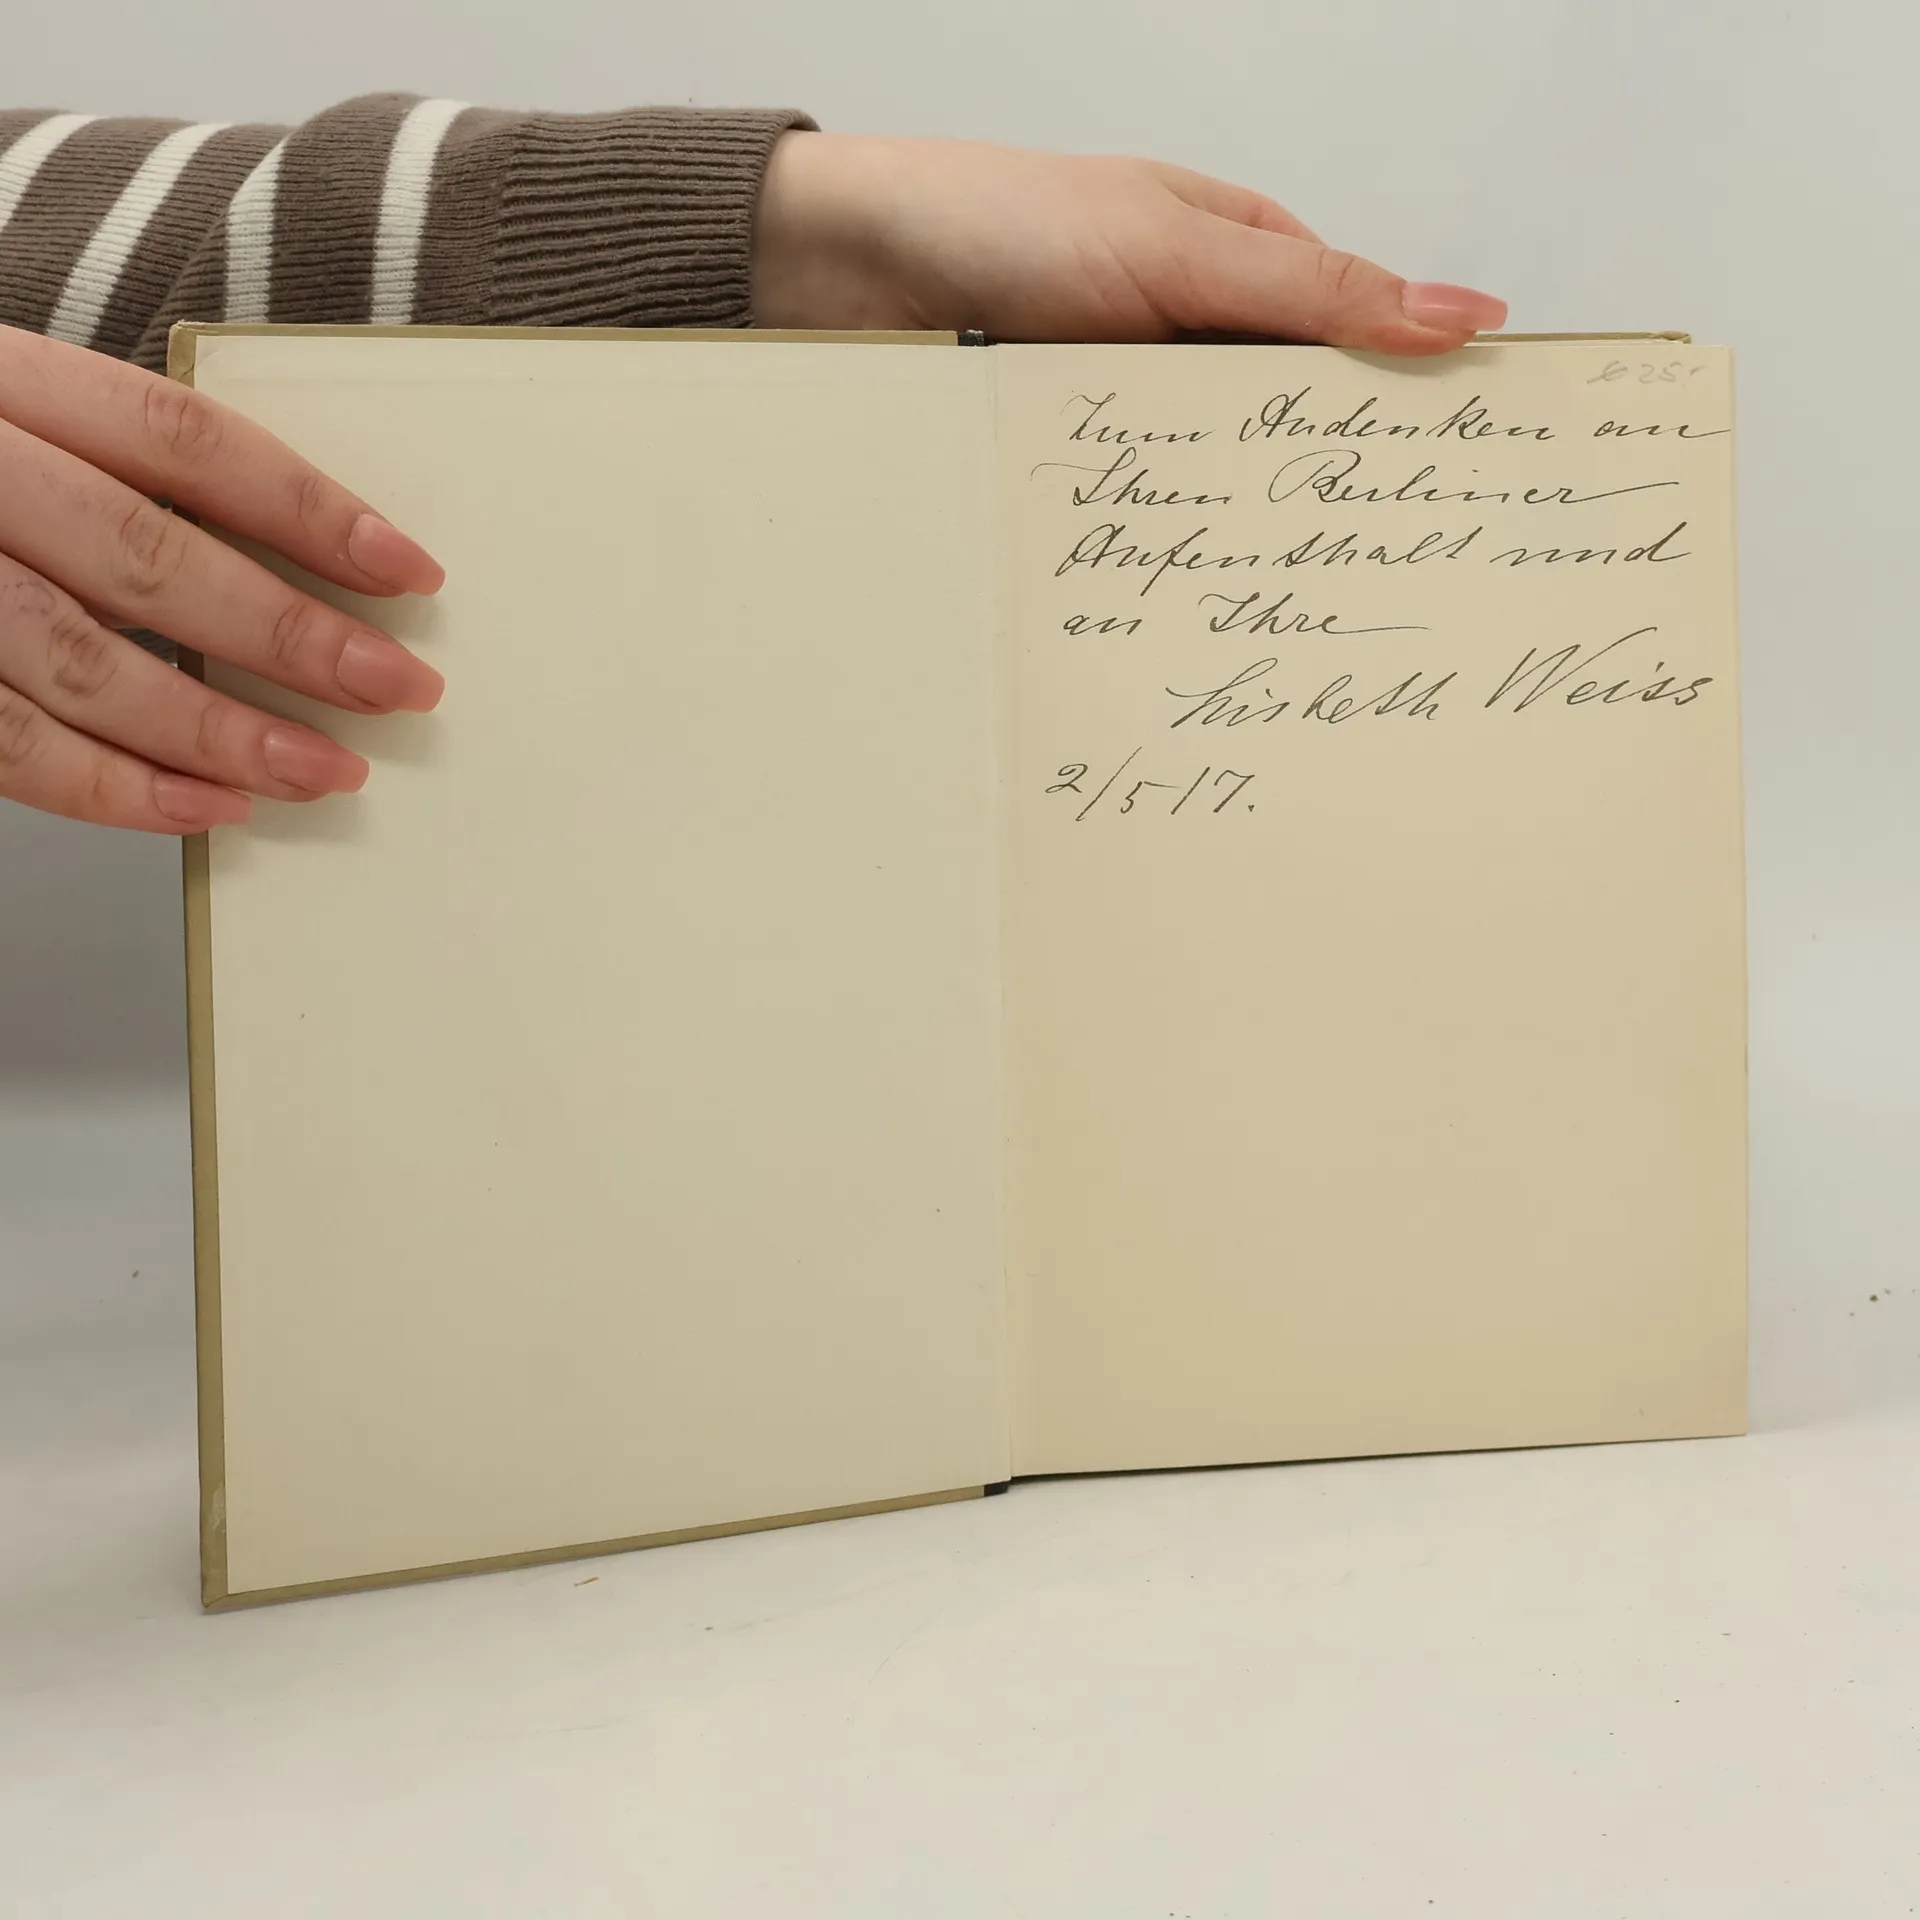 25.-
Zum Andenken an
Ihren Berliner
Aufenthalt und
an Ihre
Lisbeth Weiss
2/5 17.